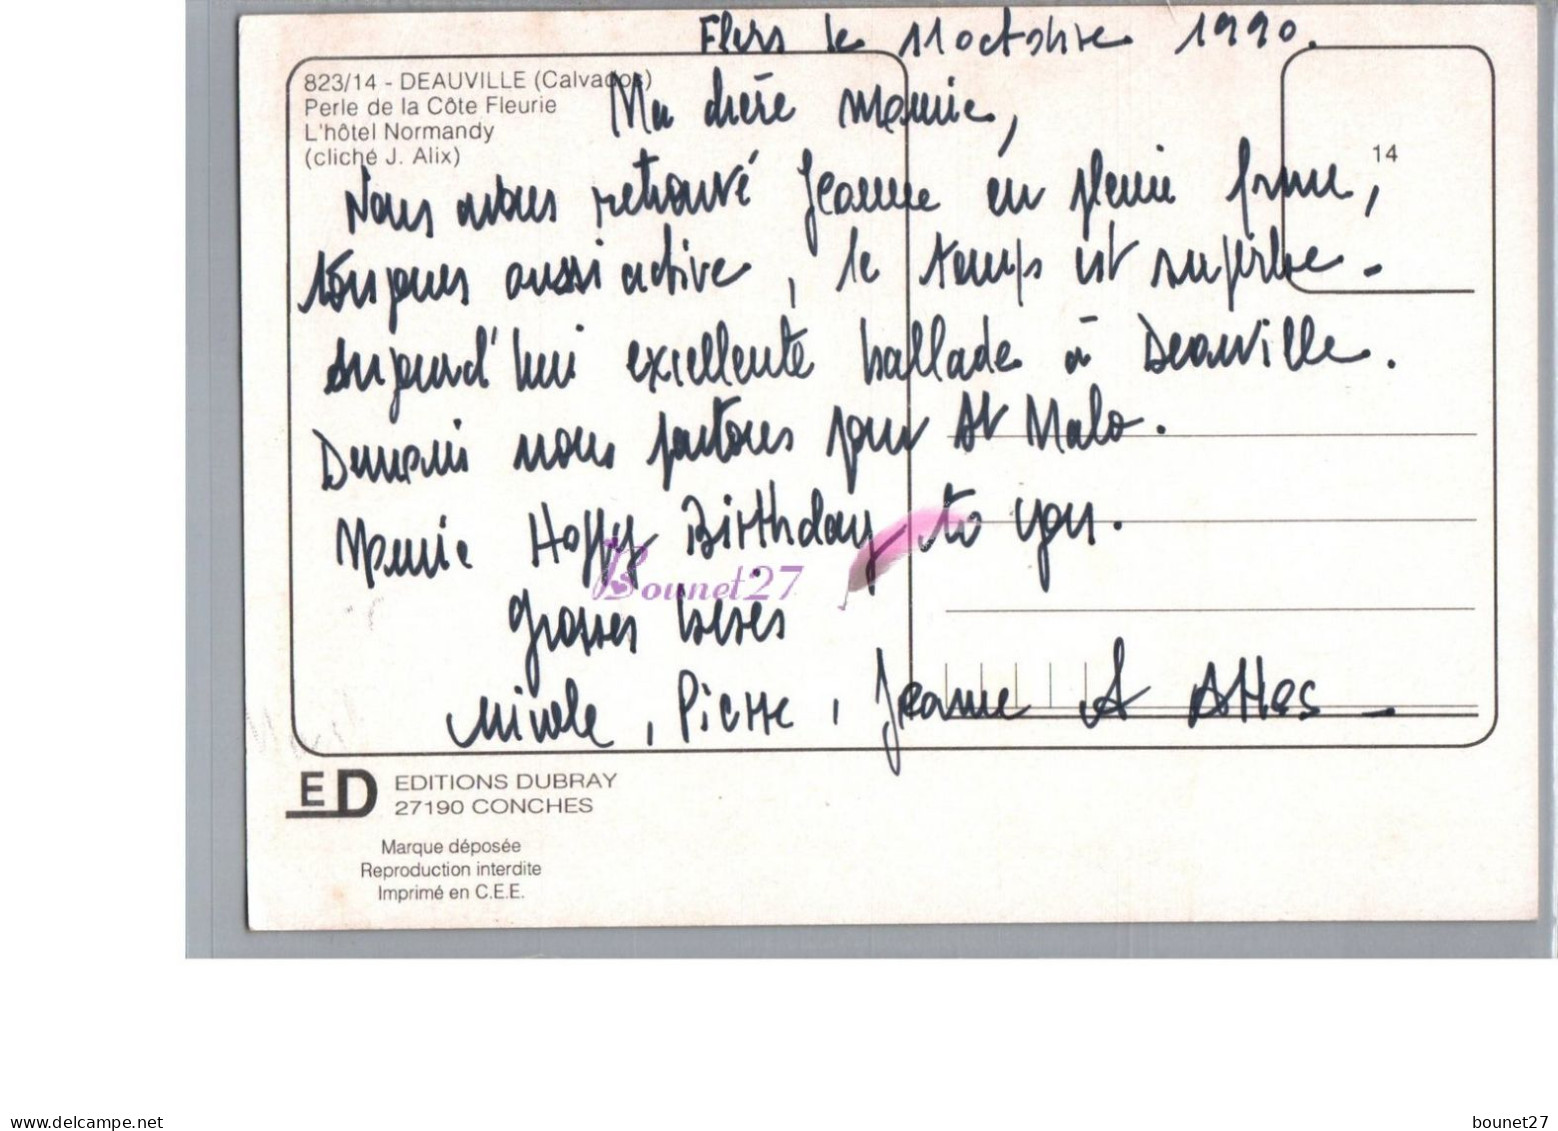 Flers le 11 octobre 1990.
823/14 - DEAUVILLE (Calvados)
Perle de la Côte Fleurie
L'hôtel Normandy
(cliché J. Alix)
14
Ma chère Mamie,
Nous avons retrouvé Jeanne en pleine forme,
toujours aussi active, le temps est superbe -
Aujourd'hui excellente ballade à Deauville.
Demain nous partons pour St Malo.
Mamie Happy Birthday to you.
Bounet27
Grosses bises
Nicole, Pierre, Jeanne &
ED EDITIONS DUBRAY
27190 CONCHES
Marque déposée
Reproduction interdite
Imprimé en C.E.E.
www.delcampe.net
bounet27